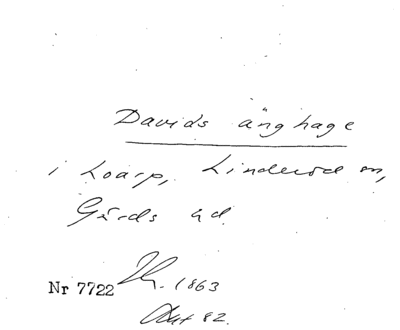 Davids änghage
i Loarp, Linderöd sn,
Gärds hd.
Nr 7722 1863
82.